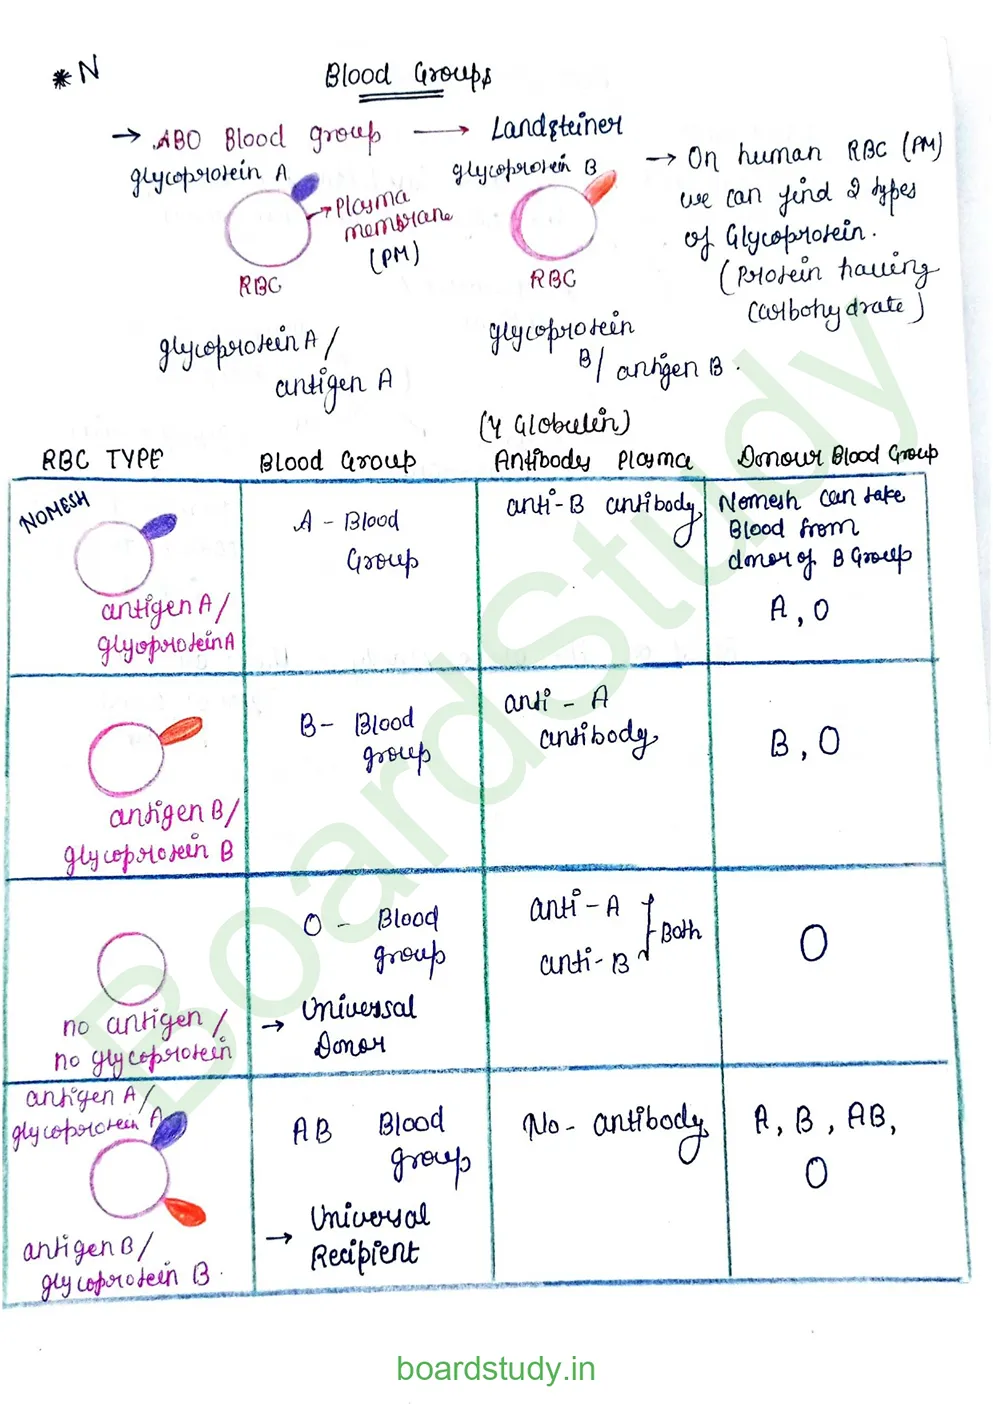 *N
Blood Groups
→ ABO Blood group → Landsteiner
glycoprotein A
Plasma
membrane
(PM)
RBC
glycoprotein B
RBC
→ On human RBC (PM)
we can find 2 types
of Glycoprotein.
(Protein having
Carbohydrate)
glycoprotein A /
antigen A
glycoprotein
B/ antigen B.
(γ Globulin)
RBC TYPE
Blood Group
Antibody Plasma
Donour Blood Group
NOMESH
antigen A/
glyoprotein A
A - Blood
Group
anti-B antibody
Nomesh can take
Blood from
donor of B Group
A, O
antigen B/
glycoprotein B
B - Blood
group
anti - A
antibody
B, O
no antigen /
no glycoprotein
O - Blood
group
→ Universal
Donor
anti - A
anti - B
Both
O
antigen A/
glycoprotein A
antigen B/
glycoprotein B.
AB Blood
group
→ Universal
Recipient
No - antibody
A, B, AB,
O
BoardStudy
boardstudy.in